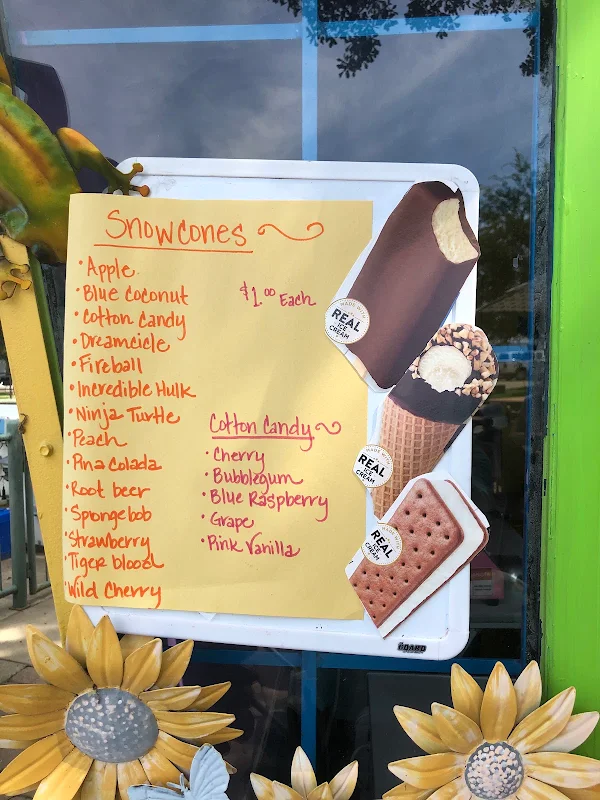 Snowcones
• Apple
• Blue Coconut
• Cotton Candy
• Dreamcicle
• Fireball
• Incredible Hulk
• Ninja Turtle
• Peach
• Pina Colada
• Root beer
• Spongebob
• Strawberry
• Tiger blood
• Wild Cherry
$1.00 Each
Cotton Candy
• Cherry
• Bubblegum
• Blue Raspberry
• Grape
• Pink Vanilla
MADE WITH
REAL
ICE
CREAM
MADE WITH
REAL
ICE
CREAM
MADE WITH
REAL
ICE
CREAM
THE
BOARD